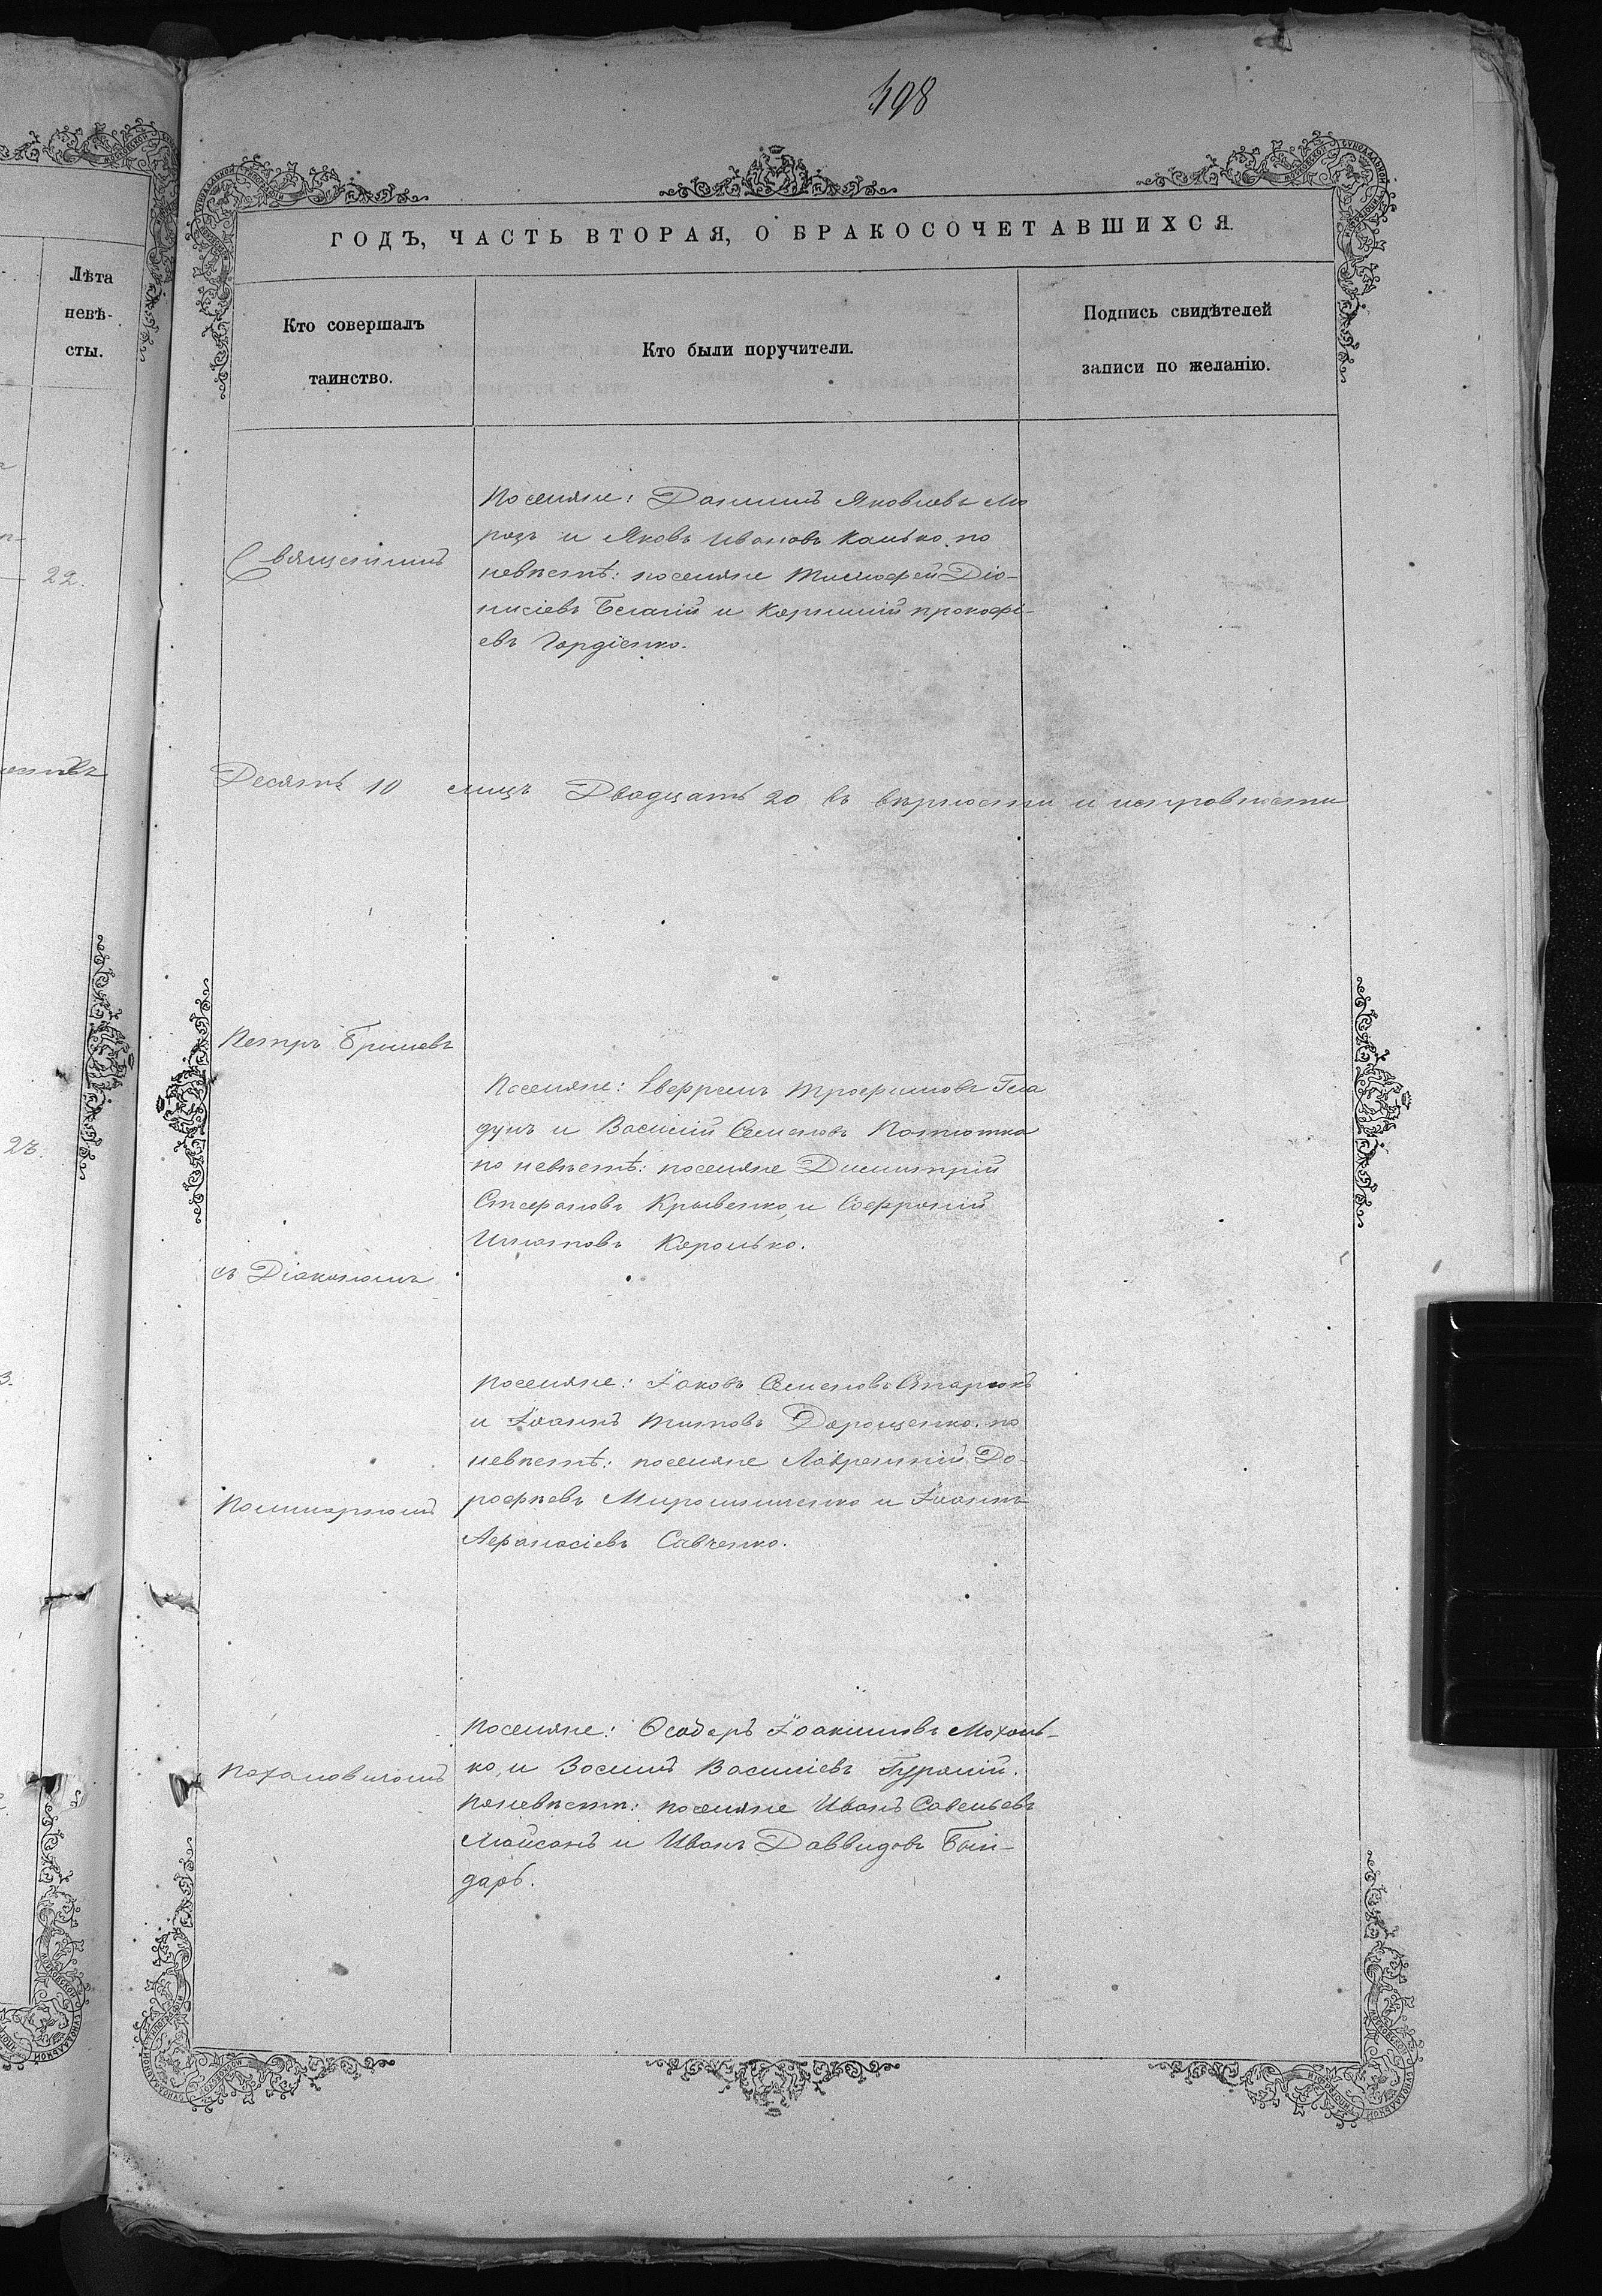 498
ГОДЪ, ЧАСТЬ ВТОРАЯ, О БРАКОСОЧЕТАВШИХСЯ.
Лѣта
невѣ-
сты.
Кто совершалъ
таинство.
Кто были поручители.
Подпись свидѣтелей
записи по желанію.
22.
Священникъ
Поселяне: Данiилъ Яковлевъ Мо
розъ и Яковъ Ивановъ Калько по
невѣстѣ: поселяне Тимофей Діо-
нисіевъ и Корнилій Прокофі-
евъ Гордіенко.
Десять 10 лицъ Двадцать 20 въ вѣрности и исправности
Петръ
Поселяне: Трофимовъ Гла
дунъ и Василій Семеновъ
по невѣстѣ: поселяне Димитрій
Стефановъ Кривенко, и Софроній
Игнатовъ Королько.
съ Діакономъ
поселяне: Іаковъ Семеновъ
и Іоаннъ Титовъ Дорошенко. по
невѣстѣ: поселяне Лаврентій До-
рофѣевъ Мирошниченко и Іоаннъ
Афанасіевъ Савченко.
Поселяне: Іоакимовъ Мохонь-
ко, и Зосимъ Василіевъ
поневѣсти: поселяне Иванъ Савельевъ
и Иванъ Даввидовъ Бон-
дарь.